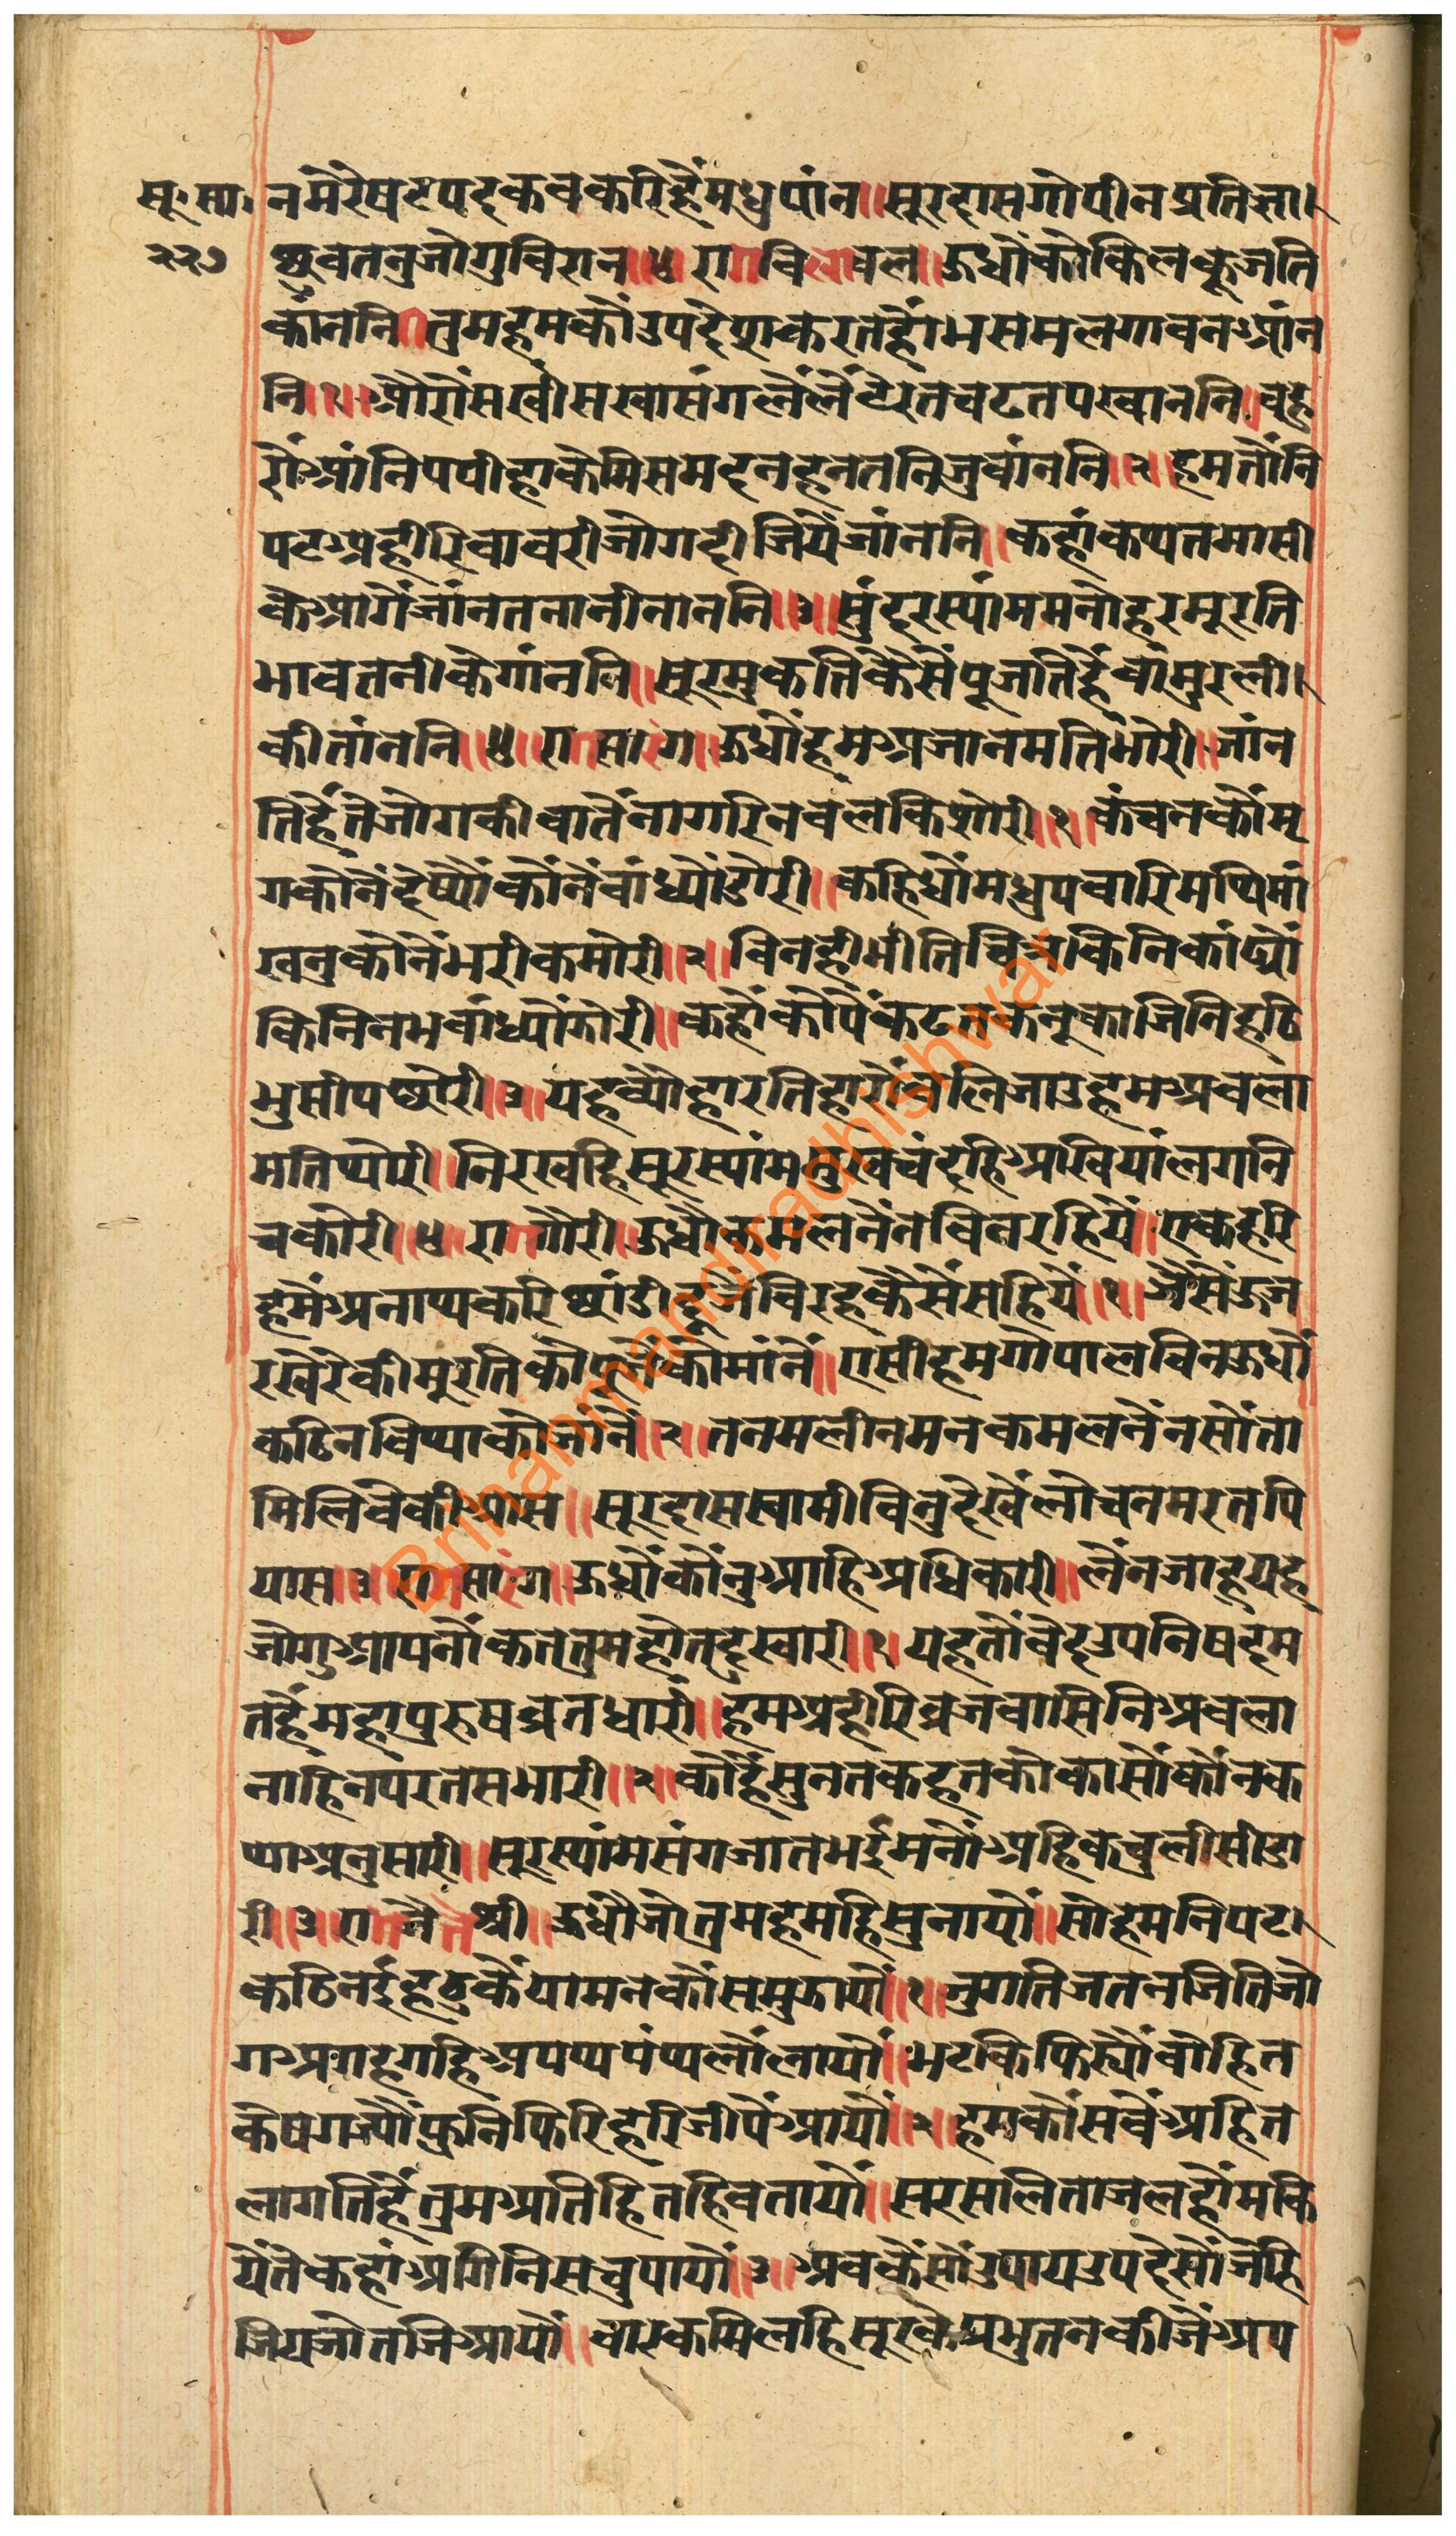 सू. सा. नमेरेषटपदकबकरिहैंमधुपांन॥सूरदासगोपीनप्रतिज्ञा।
२२७ छुवतनुजोगुविरान॥४॥रागविलावल॥ऊधौंकोकिलकूजति
कांननि॥तुमहमकौंउपदेशकरतहौंभसमलगावनआंन
नि॥१॥औरौंसखीसखासंगलैंलैंटेरतचढतपखाननि॥बहु
रौंआंनिपपीहाकेमिसमदनहनतनिजुबांननि॥२॥हमतौंनि
पटअहीरिबावरीजोगदीजियेंजांननि॥कहांकथतमासी
केआगेंजांनतनानीनाननि॥३॥सुंदरस्यांममनोहरमूरति
भावतनीकेगांननि॥सूरमुकतिकैसेंपूजतिहैंबामुरली।
कीतांननि॥४॥रागसारंग॥ऊधौंहमअजानमतिभोरी॥जांन
तिहैंतेजोगकीबातेंनागरिनवलकिशोरी॥१॥कंचनकौंमृ
गकौनेंदेष्यौंकौनेंबांध्यौंडोरी॥कहिधौंमधुपवारिमथिमां
खनुकौनेंभरीकमोरी॥२॥बिनहीभीतिचित्रकिनिकांढ्यौं
किनिनभबांध्यौंझोरी॥कहौंकौपैंकढतकनूकाजिनिहठि
भुसीपछोरी॥३॥यहव्यौहारतिहारौंबलिजाउहमअबला
मतिथोरी॥निरखहिसूरस्यांममुखचंदहिअखियांलगनि
चकोरी॥४॥रागगौरी॥ऊधौकमलनेंनबिनरहियें॥एकहरि
हमेंअनाथकरिछांडीदूजेंविरहकैसेंसहियें॥१॥जैसेंऊज
रखेरेकीमूरतिकोपूजेंकोमांनें॥एसीहमगोपालबिनऊधौं
कठिनबिथाकोजांनें॥२॥तनमलीनमनकमलनेंनसोंता
मिलिबेकीआस॥सूरदासस्वामीबिनुदेखेंलोचनमरतपि
यास॥३॥रागसारंग॥ऊधौंकौंनुआहिअधिकारी॥लेंनजाहूयह
जोगुआपनौंकततुमहोतदुखारी॥१॥यहतोंबेदउपनिषदम
तहैंमहापुरुषब्रतधारी॥हमअहीरिब्रजबासिनिअबला
नाहिनपरतसभारी॥२॥कोहैंसुनतकहतकोकासौंकौंनक
थाअनुसारी॥सूरस्यांमसंगजातभईमनोंअहिकचुलीसीडा
री॥३॥रागजैतश्री॥ऊधौजोतुमहमहिसुनायों॥सोहमनिपट।
कठिनईहठुकेंयामनकौंसमुझायौं॥१॥जुगतिजतनजितिजो
गअगहगहिअपथपंथलौंलायौं॥भटकिफिरयौंबोहित
केषगज्यौंपुनिफिरिहरिजीपेंआयौं॥२॥हमकौंसबेंअहित
लागतिहैंतुमअतिहितहिबतायौं॥सरसलिताजलहौंमकि
येंतेकहांअगिनिसचुपायौं॥३॥अबकैंसौंउपायउपदेसौंजेहि
जियजोतजिआयौं॥बारकमिलहिसूरकेप्रभुतनकीजेंअप